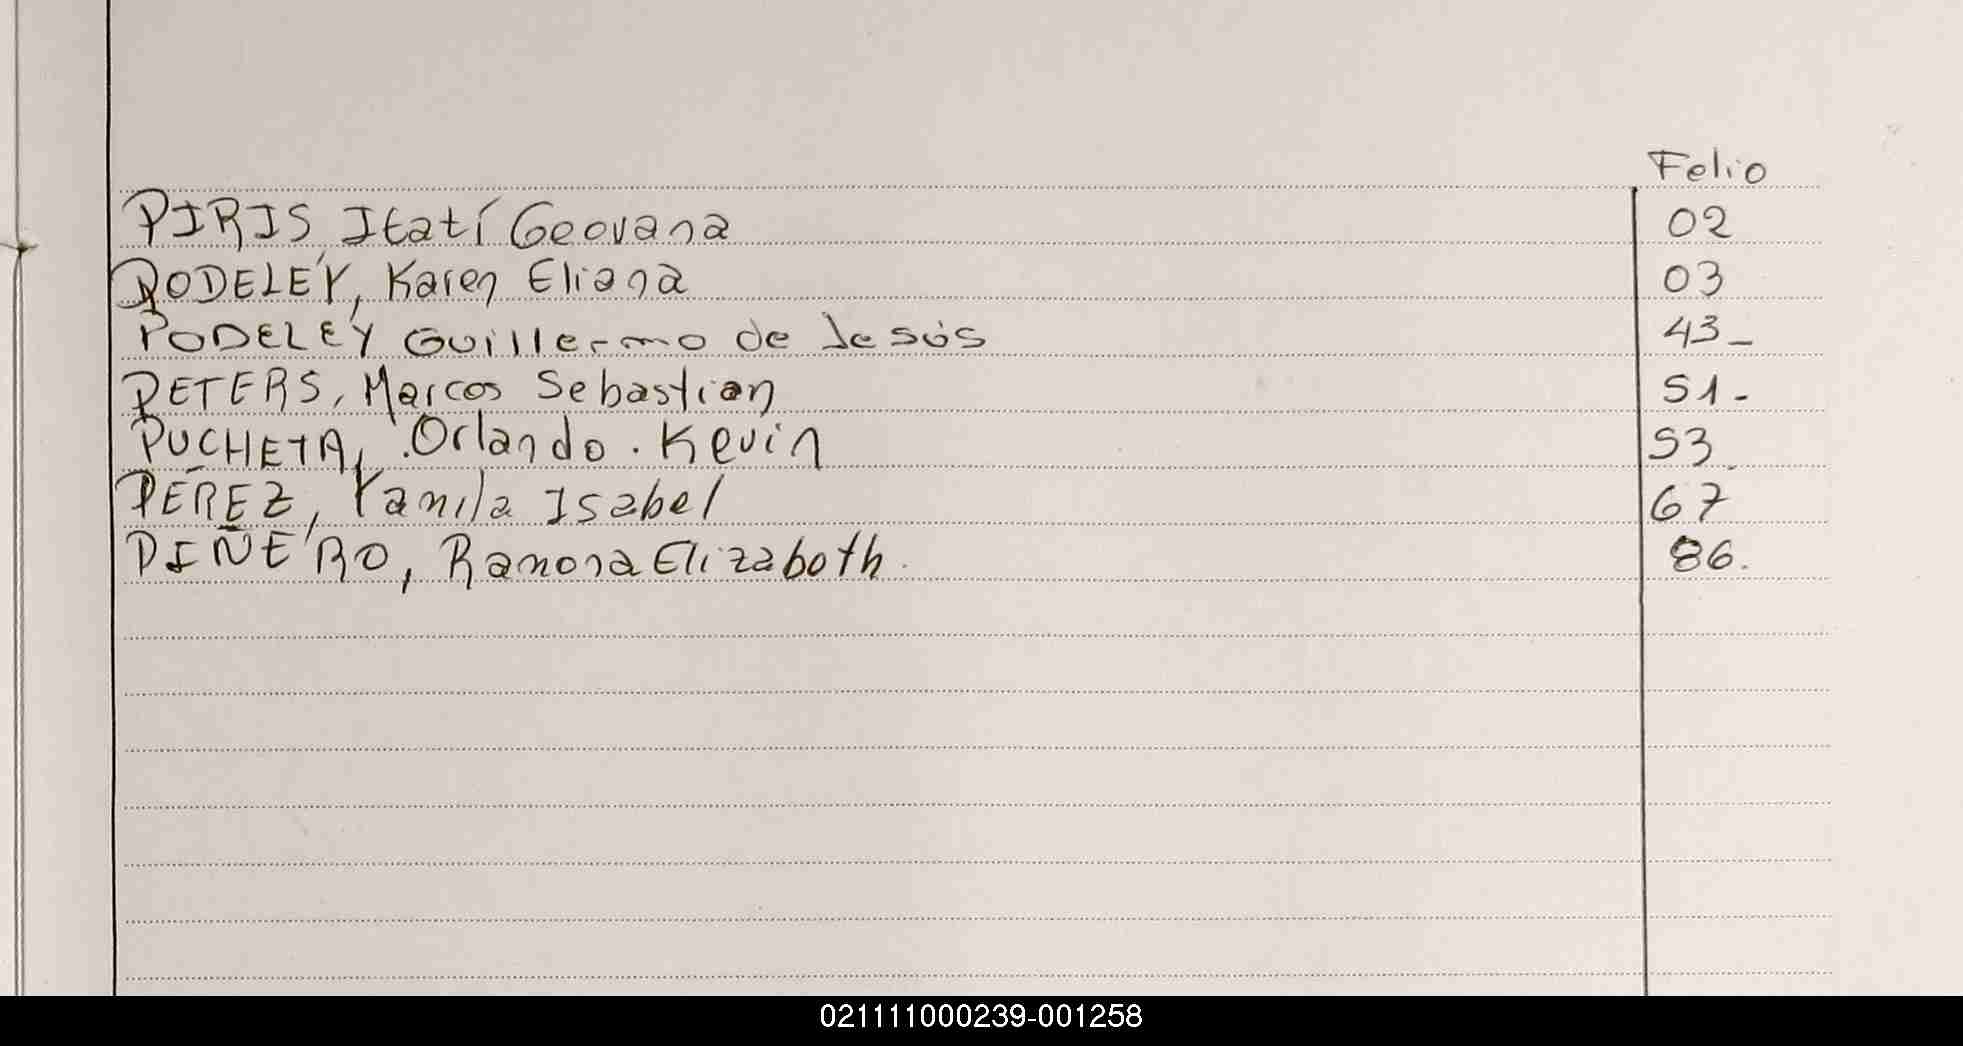 Folio
PIRIS, Itatí Geovana 02
PODELEY, Karen Eliana 03
PODELEY Guillermo de Jesús 43_
PETERS, Marcos Sebastian 51-
PUCHETA, Orlando. Kevin 53
PEREZ, Yamila Isabel 67
PIÑEIRO, Ramona Elizabeth. 86.
021111000239-001258